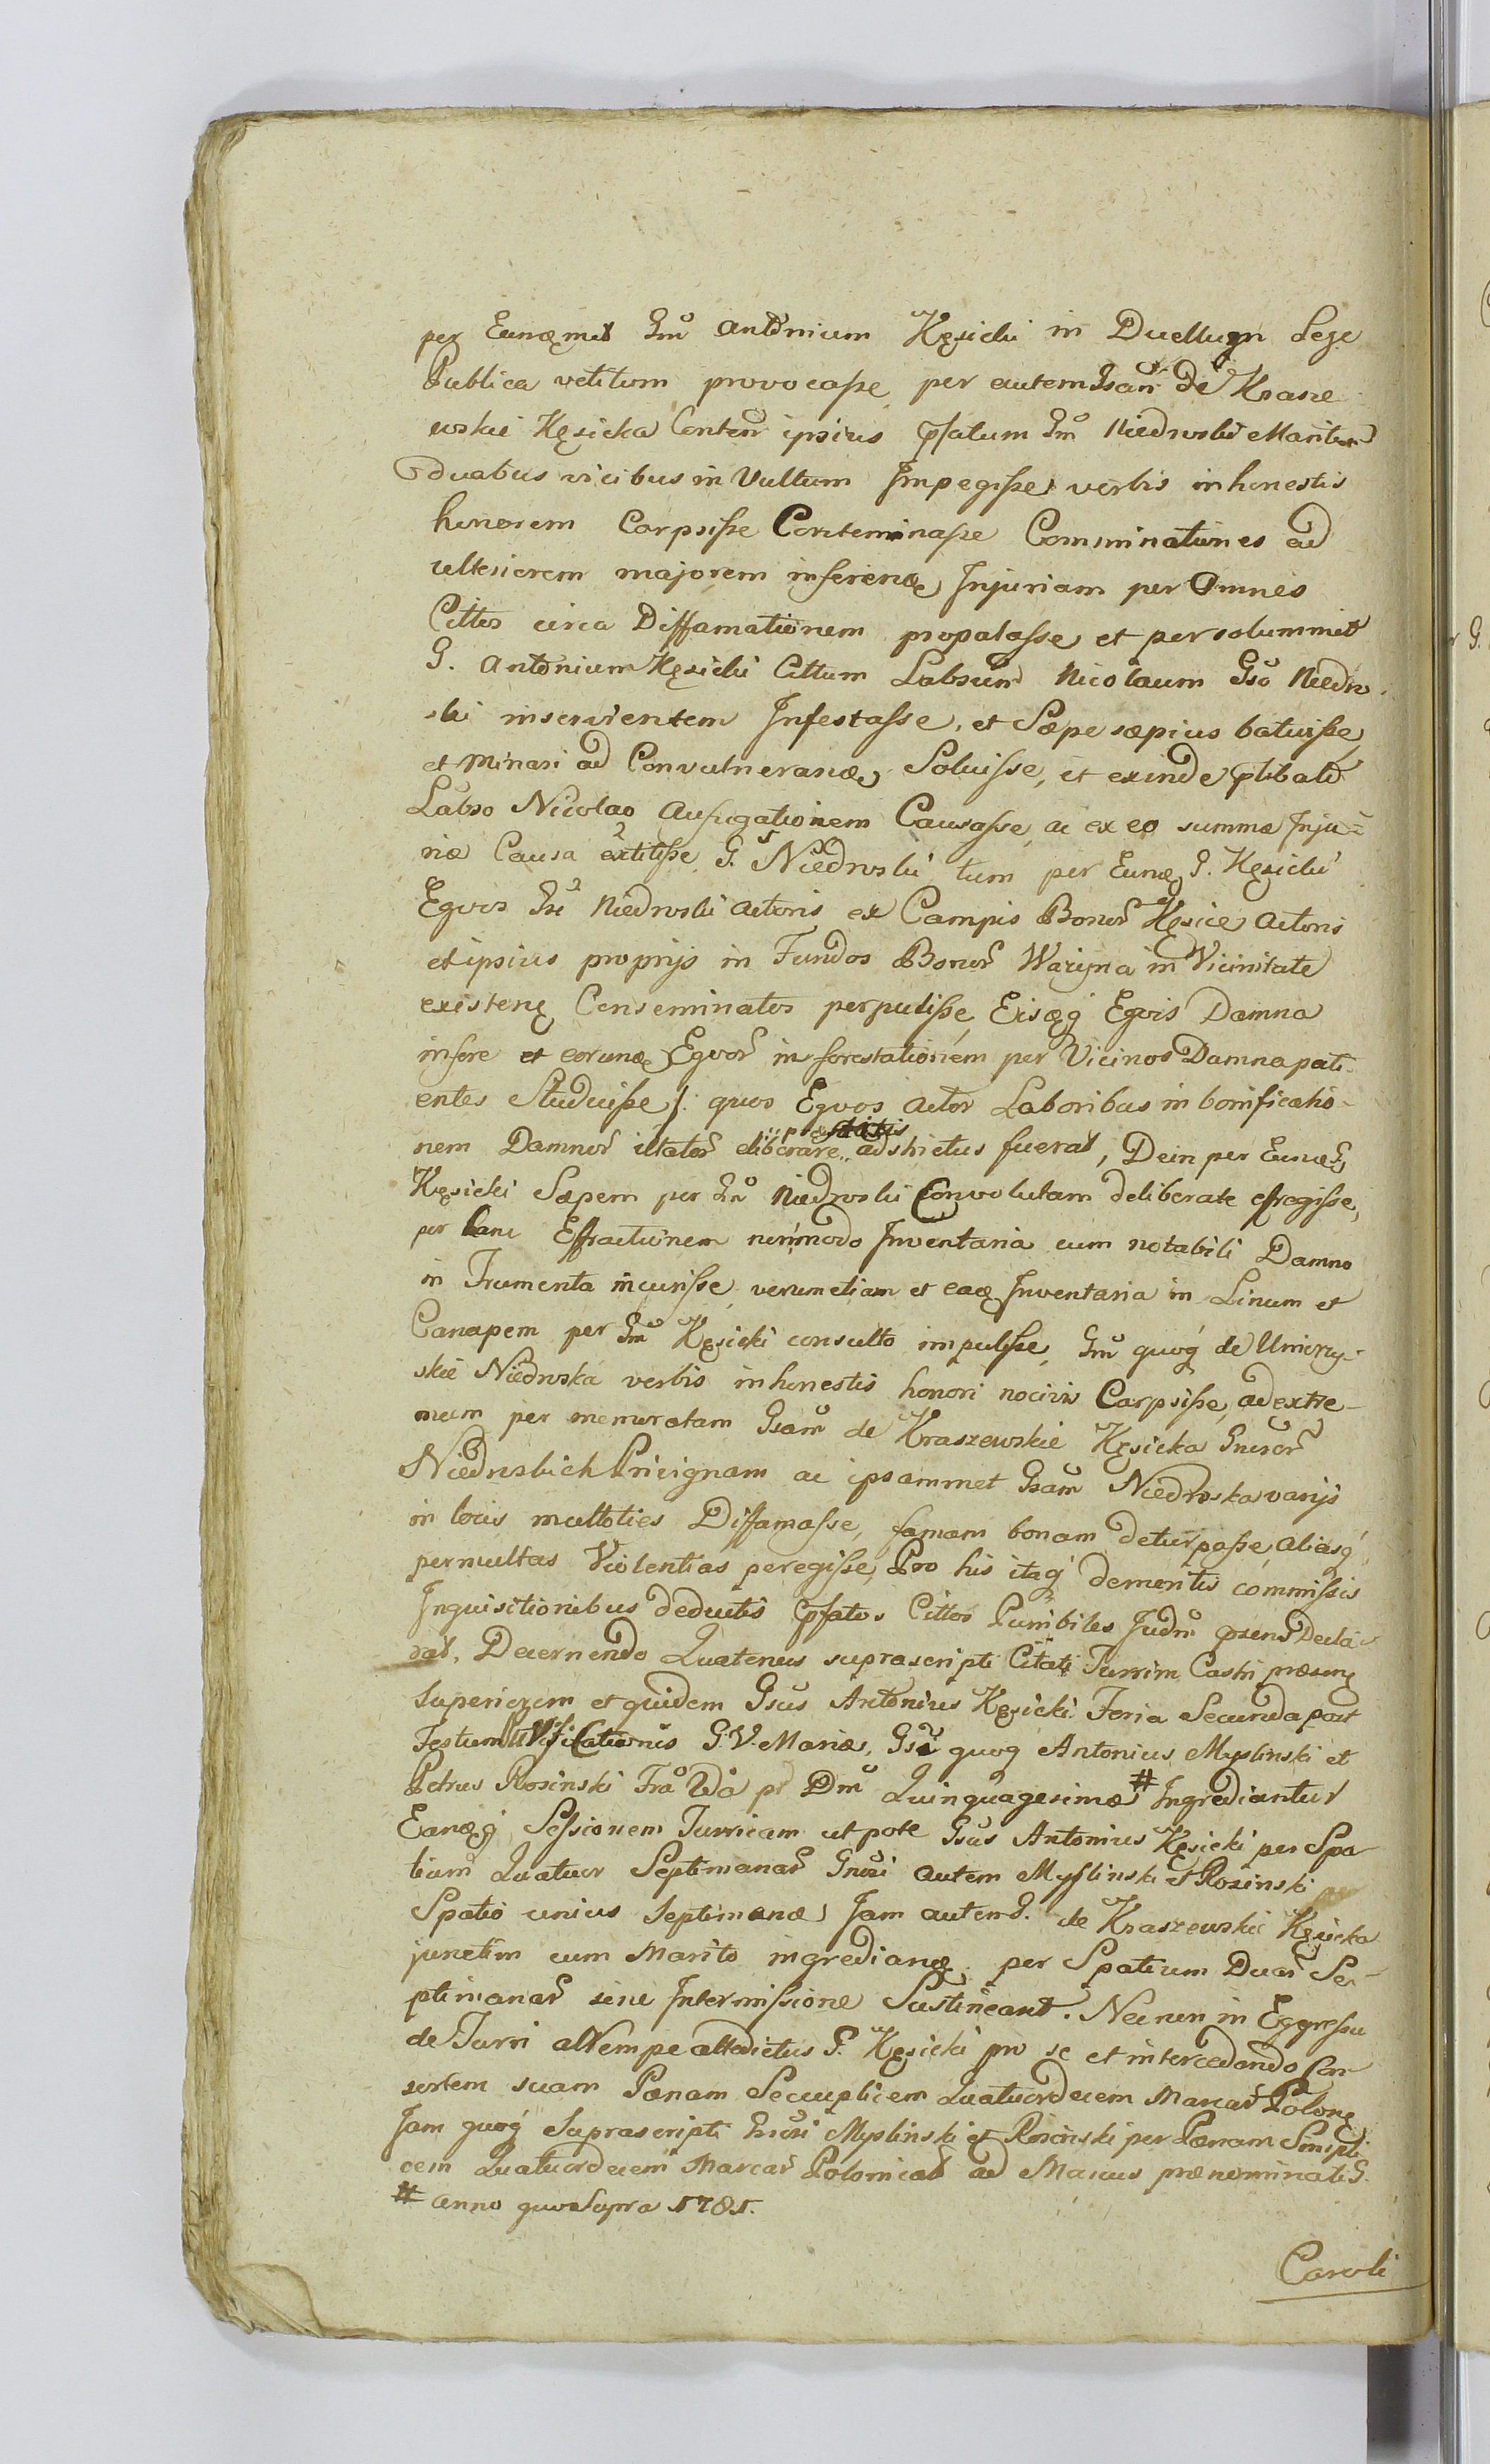 per Eundemet Gnu Antonium Kęsicki in Duellum Lege
Publica vetitum provocaße per autem Gsam de Krasze
wskie Kęsicka Conten ipsius pfatum Gm Niedrwski Maritum
duabus vicibus in Vultum Impegiße verbis inhonestis
honorem Carpsiße Conteminaße Comminationes ad
ulteriorem majorem inferendę Injuriam per Omnes
Cittos circa Diffamationem propalasse et per solummet
G. Antonium Kęsicki Cittum Labsum Nicolaum Gso Niedrw
ski inservientem Infestasse, et Sæpe sæpius batuiße
et minari ad Convulnerandę Soluisse, et exinde plibato
Labso Nicolao Aufugationem Causasse, ac ex eo summæ Inju=
riæ Causa extitiße G. Niedrwski tum per Eund G. Kęsicki
Eqvos Gsi Niedrwski Actoris ex Campis Bonor Kęsice Actoris
et ipsius proprijs in Fundos Bonor Warzyna in Vicinitate
existenę Conseminatos perpuliße, Eisqg Eqvis Damna
infere et eorund Eqvor in forestationem per Vicinos Damna pati
entes Studuiße /: quos Eqvos Actor Laboribus in bonificatio-
nem Damnor illator eliberare adstrictus fuerat, Dein per Eund G.
Kęsicki Sæpem per Gm Niedrwski Convolutam deliberate efregiße,
per hanc Effractionem nonmodo Inventaria cum notabili Damno
in Frumenta incuriße, verumetiam et eaę Inventaria in Linum et
Canapem per Gm Kęsicki consulto impuliße, Gm quog de Umierzy-
skie Niedrwska verbis inhonestis honori nocivis Carpsiße, ad extre-
mum per memoratam Gsam de Kraszewskie Kęsicka Gneror
Niedrwskich Privignam ac ipsammet Gsam Niedrwska varijs
in locis multoties Diffamasse, famam bonam deturpaße, aliasg
permultas Violentias peregiße, Pro his itaq demeritis commissis
Inquisitionibus deductis pfatos Cittos Punibiles Judm præns Decla-
rat, Decernendo Quatenus suprascripti Citati Turrim Castri præseng
Superiorem et quidem Gsus Antonius Kęsicki Feria Secunda post
Festum Purificationis G. V. Mariæ, Gsi quog Antonius Myslinski et
Petrus Rosinski Fra 2da p Dm Quinquagesimæ # Ingrediantur
Eandęg Seßionem Turricam utpote Gsus Antonius Kęsicki per Spa
tium Quatuor Septimanar Gnosi autem Myßlinski et Rosinski
Spatio unius Septimanæ, Jam autem G. de Kraszewskie Kęsicka
junctim cum Marito ingredianę per Spatium Duar Se-
ptimanar sine Intermißione Sustineant. Necnon in Eggreßu
de Turri attempe attedictus G. Kęsicki pro se et intercedendo Con
sortem suam Pænam Secuplicem Quatuordecem Marcar Polong
Jam quog Suprascripti Gnosi Myslinski et Rosinski per Pænam Simpli
cem Quatuordecem Marcar Polonicar ad Manus prænominati G.
# Anno quo Supra 1781.
Caroli